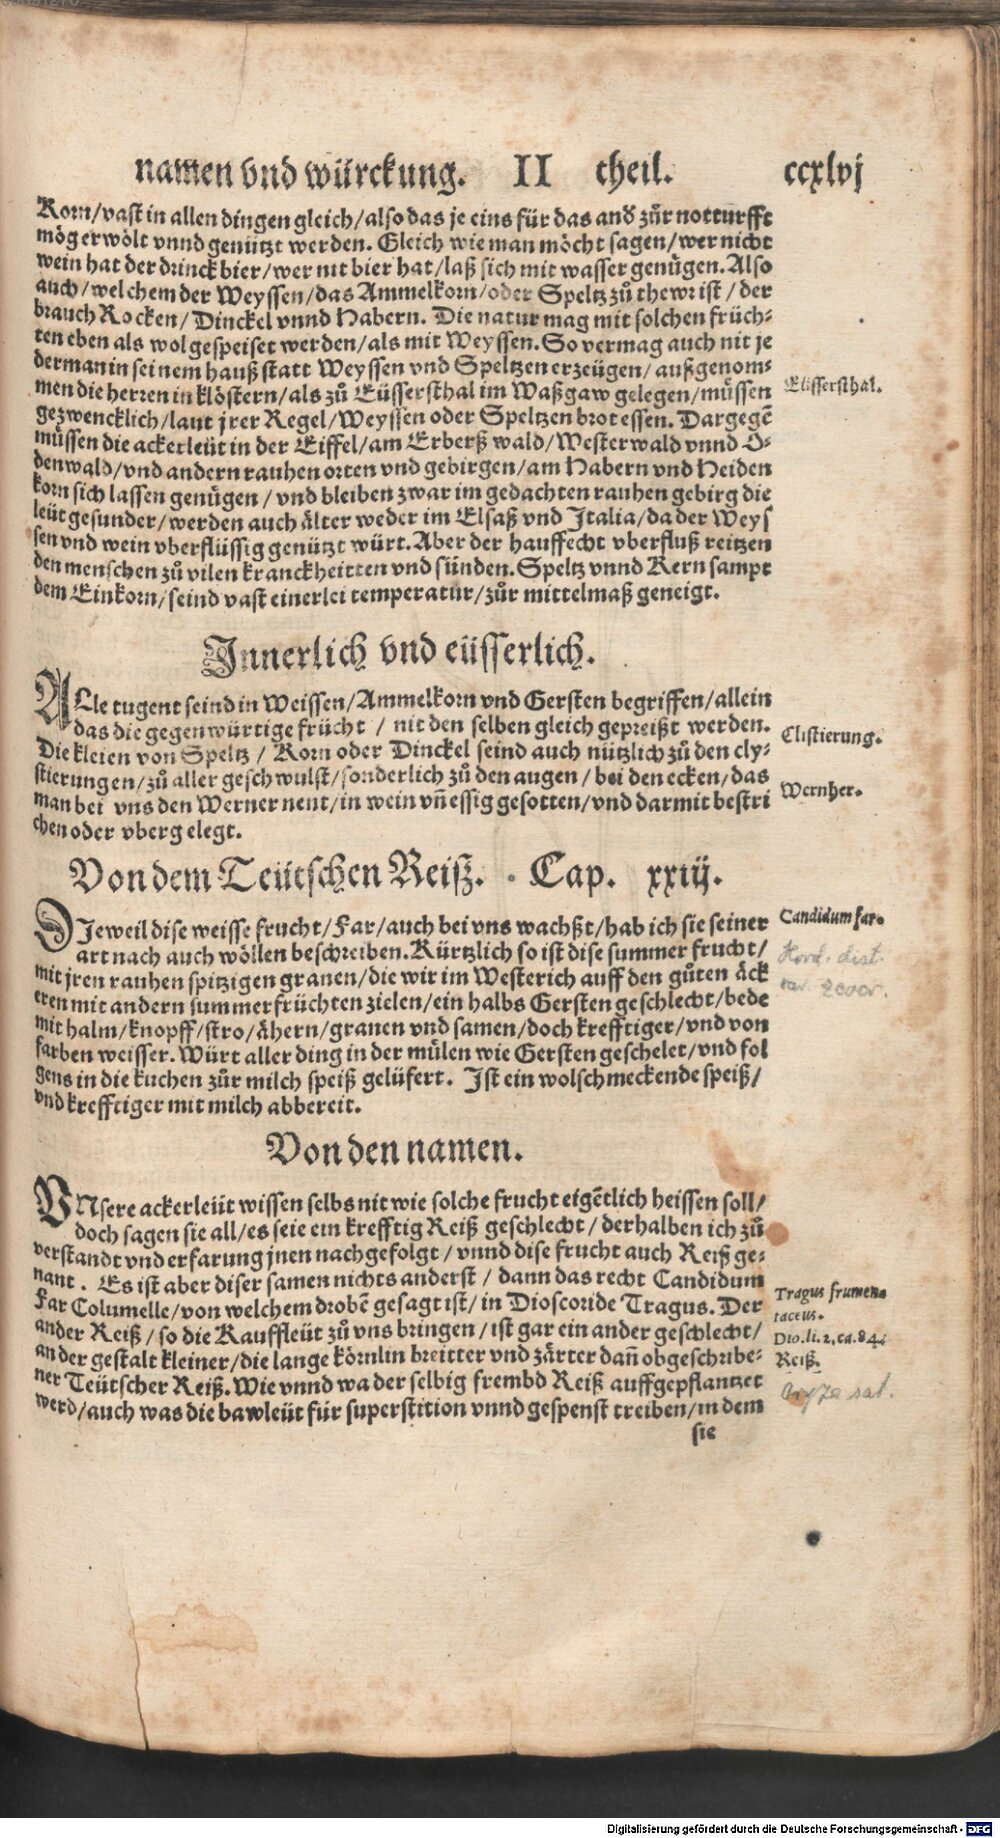 namen vnd würckung. II theil. ccxlvj
Korn/vast in allen dingen gleich/also das je eins für das and zůr notturfft
mög erwölt vnnd genützt werden. Gleich wie man möcht sagen/wer nicht
wein hat der drinck bier/wer nit bier hat/laß sich mit wasser genügen. Also
auch/welchem der Weyssen/das Ammelkorn/oder Speltz zů thewr ist/der
brauch Rocken/Dinckel vnnd Habern. Die natur mag mit solchen früch-
ten eben als wol gespeiset werden/als mit Weyssen. So vermag auch nit je
derman in seinem hauß statt Weyssen vnd Speltzen erzeügen/außgenom-
men die herren in klöstern/als zů Eüssersthal im Waßgaw gelegen/müssen
gezwencklich/laut jrer Regel/Weyssen oder Speltzen brot essen. Dargegē
müssen die ackerleüt in der Eiffel/am Erberß wald/Westerwald vnnd O-
denwald/vnd andern rauhen orten vnd gebirgen/am Habern vnd Heiden
korn sich lassen genügen/vnd bleiben zwar im gedachten rauhen gebirg die
leüt gesunder/werden auch älter weder im Elsaß vnd Italia/da der Weys
sen vnd wein vberflüssig genützt würt. Aber der hauffecht vberfluß reitzen
den menschen zů vilen kranckheitten vnd sünden. Speltz vnnd Kern sampt
dem Einkorn/seind vast einerlei temperatur/zůr mittelmaß geneigt.
Elissersthal.
Innerlich vnd eüsserlich.
ALle tugent seind in Weissen/Ammelkorn vnd Gersten begriffen/allein
das die gegenwürtige frücht/nit den selben gleich gepreißt werden.
Die kleien von Speltz/Korn oder Dinckel seind auch nützlich zů den cly-
stierungen/zů aller geschwulst/sonderlich zů den augen/bei den ecken/das
man bei vns den Werner nent/in wein vñ essig gesotten/vnd darmit bestri
chen oder vbergelegt.
Clistierung.
Wernher.
Von dem Teütschen Reiß. Cap. xxiij.
DIeweil dise weisse frucht/Far/auch bei vns wachßt/hab ich sie seiner
art nach auch wöllen beschreiben. Kürtzlich so ist dise summer frucht/
mit jren rauhen spitzigen granen/die wir im Westerich auff den gůten äck
eren mit andern summerfrüchten zielen/ein halbs Gersten geschlecht/bede
mit halm/knopff/stro/ähern/granen vnd samen/doch krefftiger/vnd von
farben weisser. Würt aller ding in der mülen wie Gersten geschelet/vnd fol
gens in die kuchen zůr milch speiß gelüfert. Ist ein wolschmeckende speiß/
vnd krefftiger mit milch abbereit.
Candidum far.
Hord. dist.
var. Zeocr.
Von den namen.
VNsere ackerleüt wissen selbs nit wie solche frucht eigētlich heissen soll/
doch sagen sie all/es seie ein krefftig Reiß geschlecht/derhalben ich zů
verstandt vnd erfarung jnen nachgefolgt/vnnd dise frucht auch Reiß ge-
nant. Es ist aber diser samen nichts anderst/dann das recht Candidum
Far Columelle/von welchem drobē gesagt ist/in Dioscoride Tragus. Der
ander Reiß/so die Kauffleüt zů vns bringen/ist gar ein ander geschlecht/
an der gestalt kleiner/die lange körnlin breitter vnd zärter dañ obgeschribe-
ner Teütscher Reiß. Wie vnnd wa der selbig frembd Reiß auffgepflantzet
werd/auch was die bawleüt für superstition vnnd gespenst treiben/in dem
sie
Tragus frumen
taceus.
Dio. li. 2. ca. 84.
Reiß.
Oryza sat.
Digitalisierung gefördert durch die Deutsche Forschungsgemeinschaft - DFG